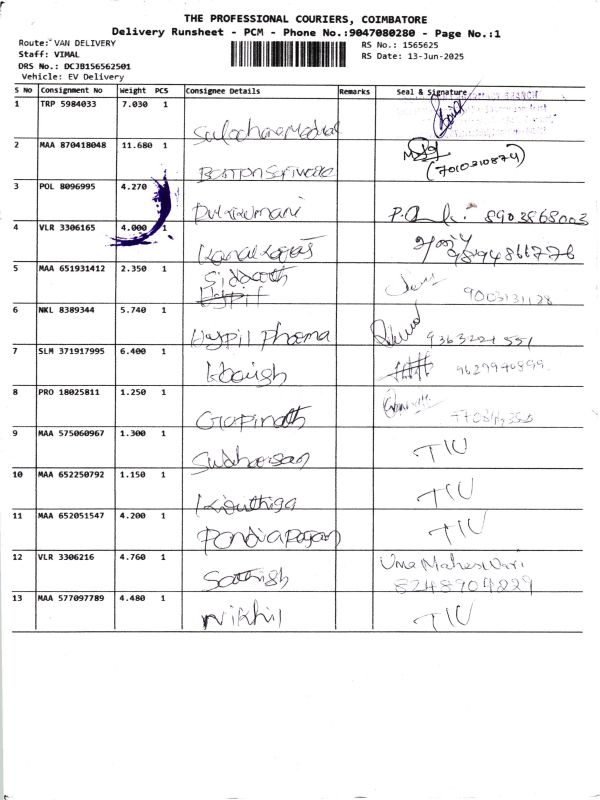 THE PROFESSIONAL COURIERS, COIMBATORE
Delivery Runsheet - PCM - Phone No.:9047080280 - Page No.:1
Route: VAN DELIVERY
Staff: VIMAL
DRS No.: DCJB156562501
Vehicle: EV Delivery
RS No.: 1565625
RS Date: 13-Jun-2025
S No Consignment No Weight PCS Consignee Details Remarks Seal & Signature
1 TRP 5984033 7.030 1
2 MAA 870418048 11.680 1 (7010310874)
3 POL 8096995 4.270 1 8902868003
4 VLR 3306165 4.000 1 9894866776
5 MAA 651931412 2.350 1 Siddath 9003131128
6 NKL 8389344 5.740 1 Hypil Pharma 9363221551
7 SLM 371917995 6.400 1 Harish 9629940899
8 PRO 18025811 1.250 1 Gopinath
9 MAA 575060967 1.300 1 Sudharsan TIU
10 MAA 652250792 1.150 1 Kiruthiga TIU
11 MAA 652051547 4.200 1 TIU
12 VLR 3306216 4.760 1 Sathish Uma Maheswari
8248904829
13 MAA 577097789 4.480 1 Nikhil TIU